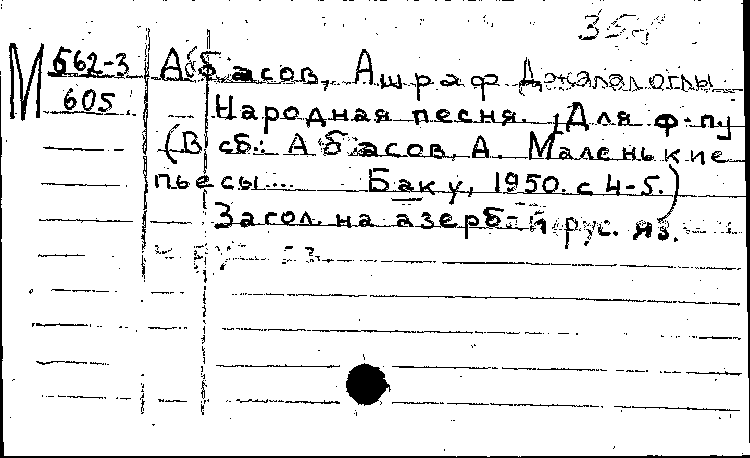 35
М 562-3 Аббасов, Ашраф Джалал оглы
605 Народная песня. [Для ф-пу
(В сб.: Аббасов, А. Маленькие
пьесы.... Баку, 1950. с 4-5.)
Загол. на азерб. и рус. яз.